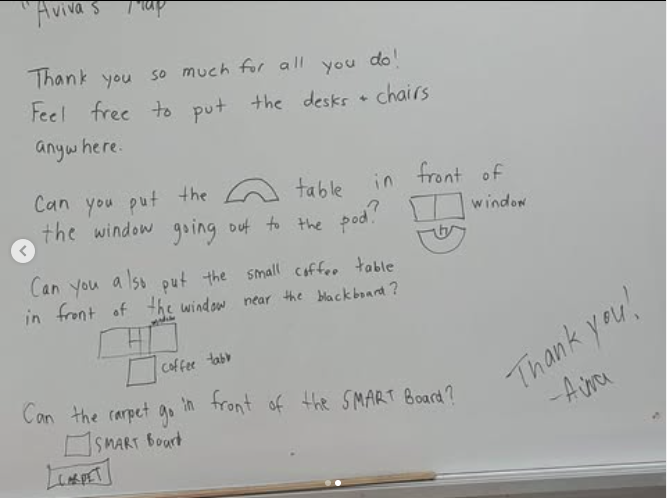 "Aviva's Map
Thank you so much for all you do!
Feel free to put the desks + chairs
anywhere.
Can you put the table in front of
the window going out to the pod?
window
Can you also put the small coffee table
in front of the window near the blackboard?
window
coffee table
Can the carpet go in front of the SMART Board?
SMART Board
CARPET
Thank you!
-Aviva